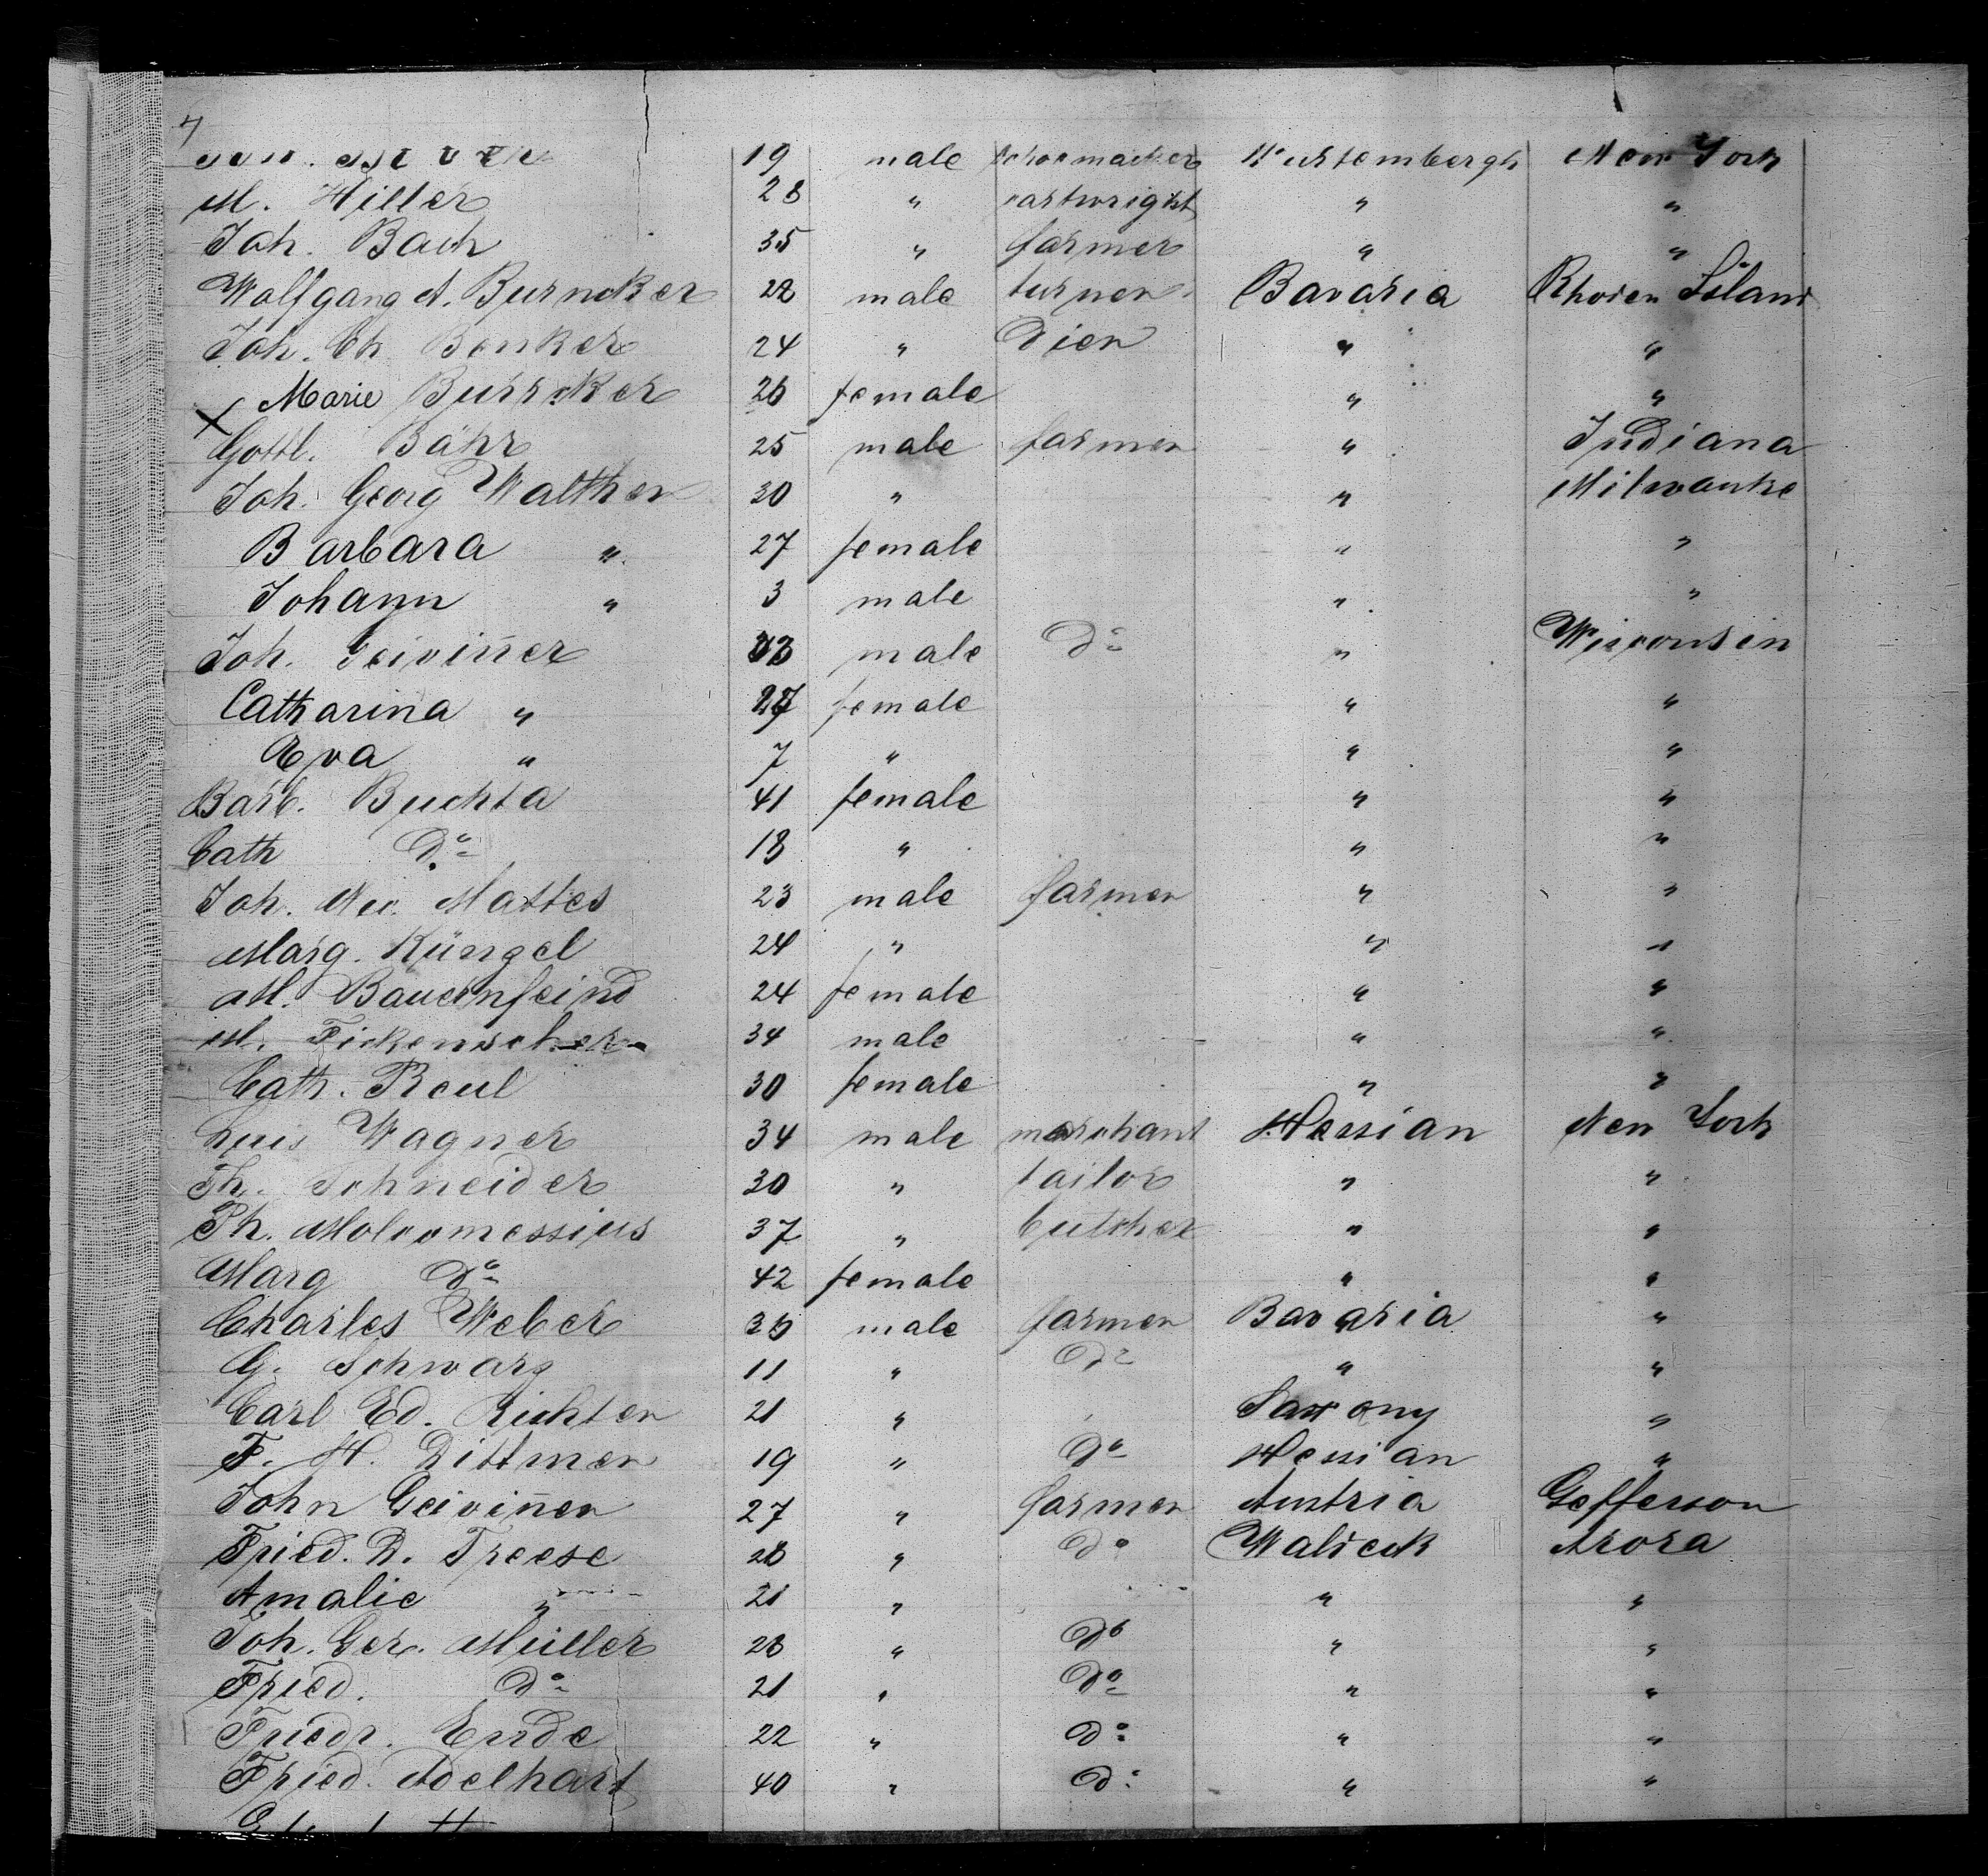 19 male schoemacker Wurtembergh New York
M. Hiller 28 " cartwright " "
Joh. Bach 35 " farmer " "
Wolfgang A. Byrncker 22 male turner Bavaria Rhoden Island
Joh. Ch. Benker 24 " Dien " "
Marie 26 female " "
Gottl. Bähr 25 male farmer " Indiana
Joh. Georg Walther 30 " " Milwauke
Barbara " 27 female " "
Johann " 3 male " "
Joh. 33 male do " Wisconsin
Catharina " 27 female " "
Eva " 7 " " "
Barb. Buchta 41 female " "
Cath do 18 " " "
Joh. Nic. Mattes 23 male farmer " "
Marg. Küngel 24 " " "
M. Bauernfeind 24 female " "
M. Fickenscher 34 male " "
Cath. Reul 30 female " "
Luis Wagner 34 male merchant Hessian New York
Th. Schneider 30 " tailor " "
Ph. 37 " butcher " "
Marg do 42 female " "
Charles Weber 36 male farmer Bavaria "
G. Schwarz 11 " do " "
Carl Ed. Richter 21 " Saxony "
F. H. Dittmer 19 " do Hessian "
John Geiviner 27 " farmer Austria Gefferson
Fried. D. Treese 28 " do Waldeck Arora
Amalie " 21 " " "
Joh. Ger. Müller 28 " do " "
Fried. do 21 " do " "
Friedr. Ende 22 " do " "
Fried. Adelhart 40 " do " "